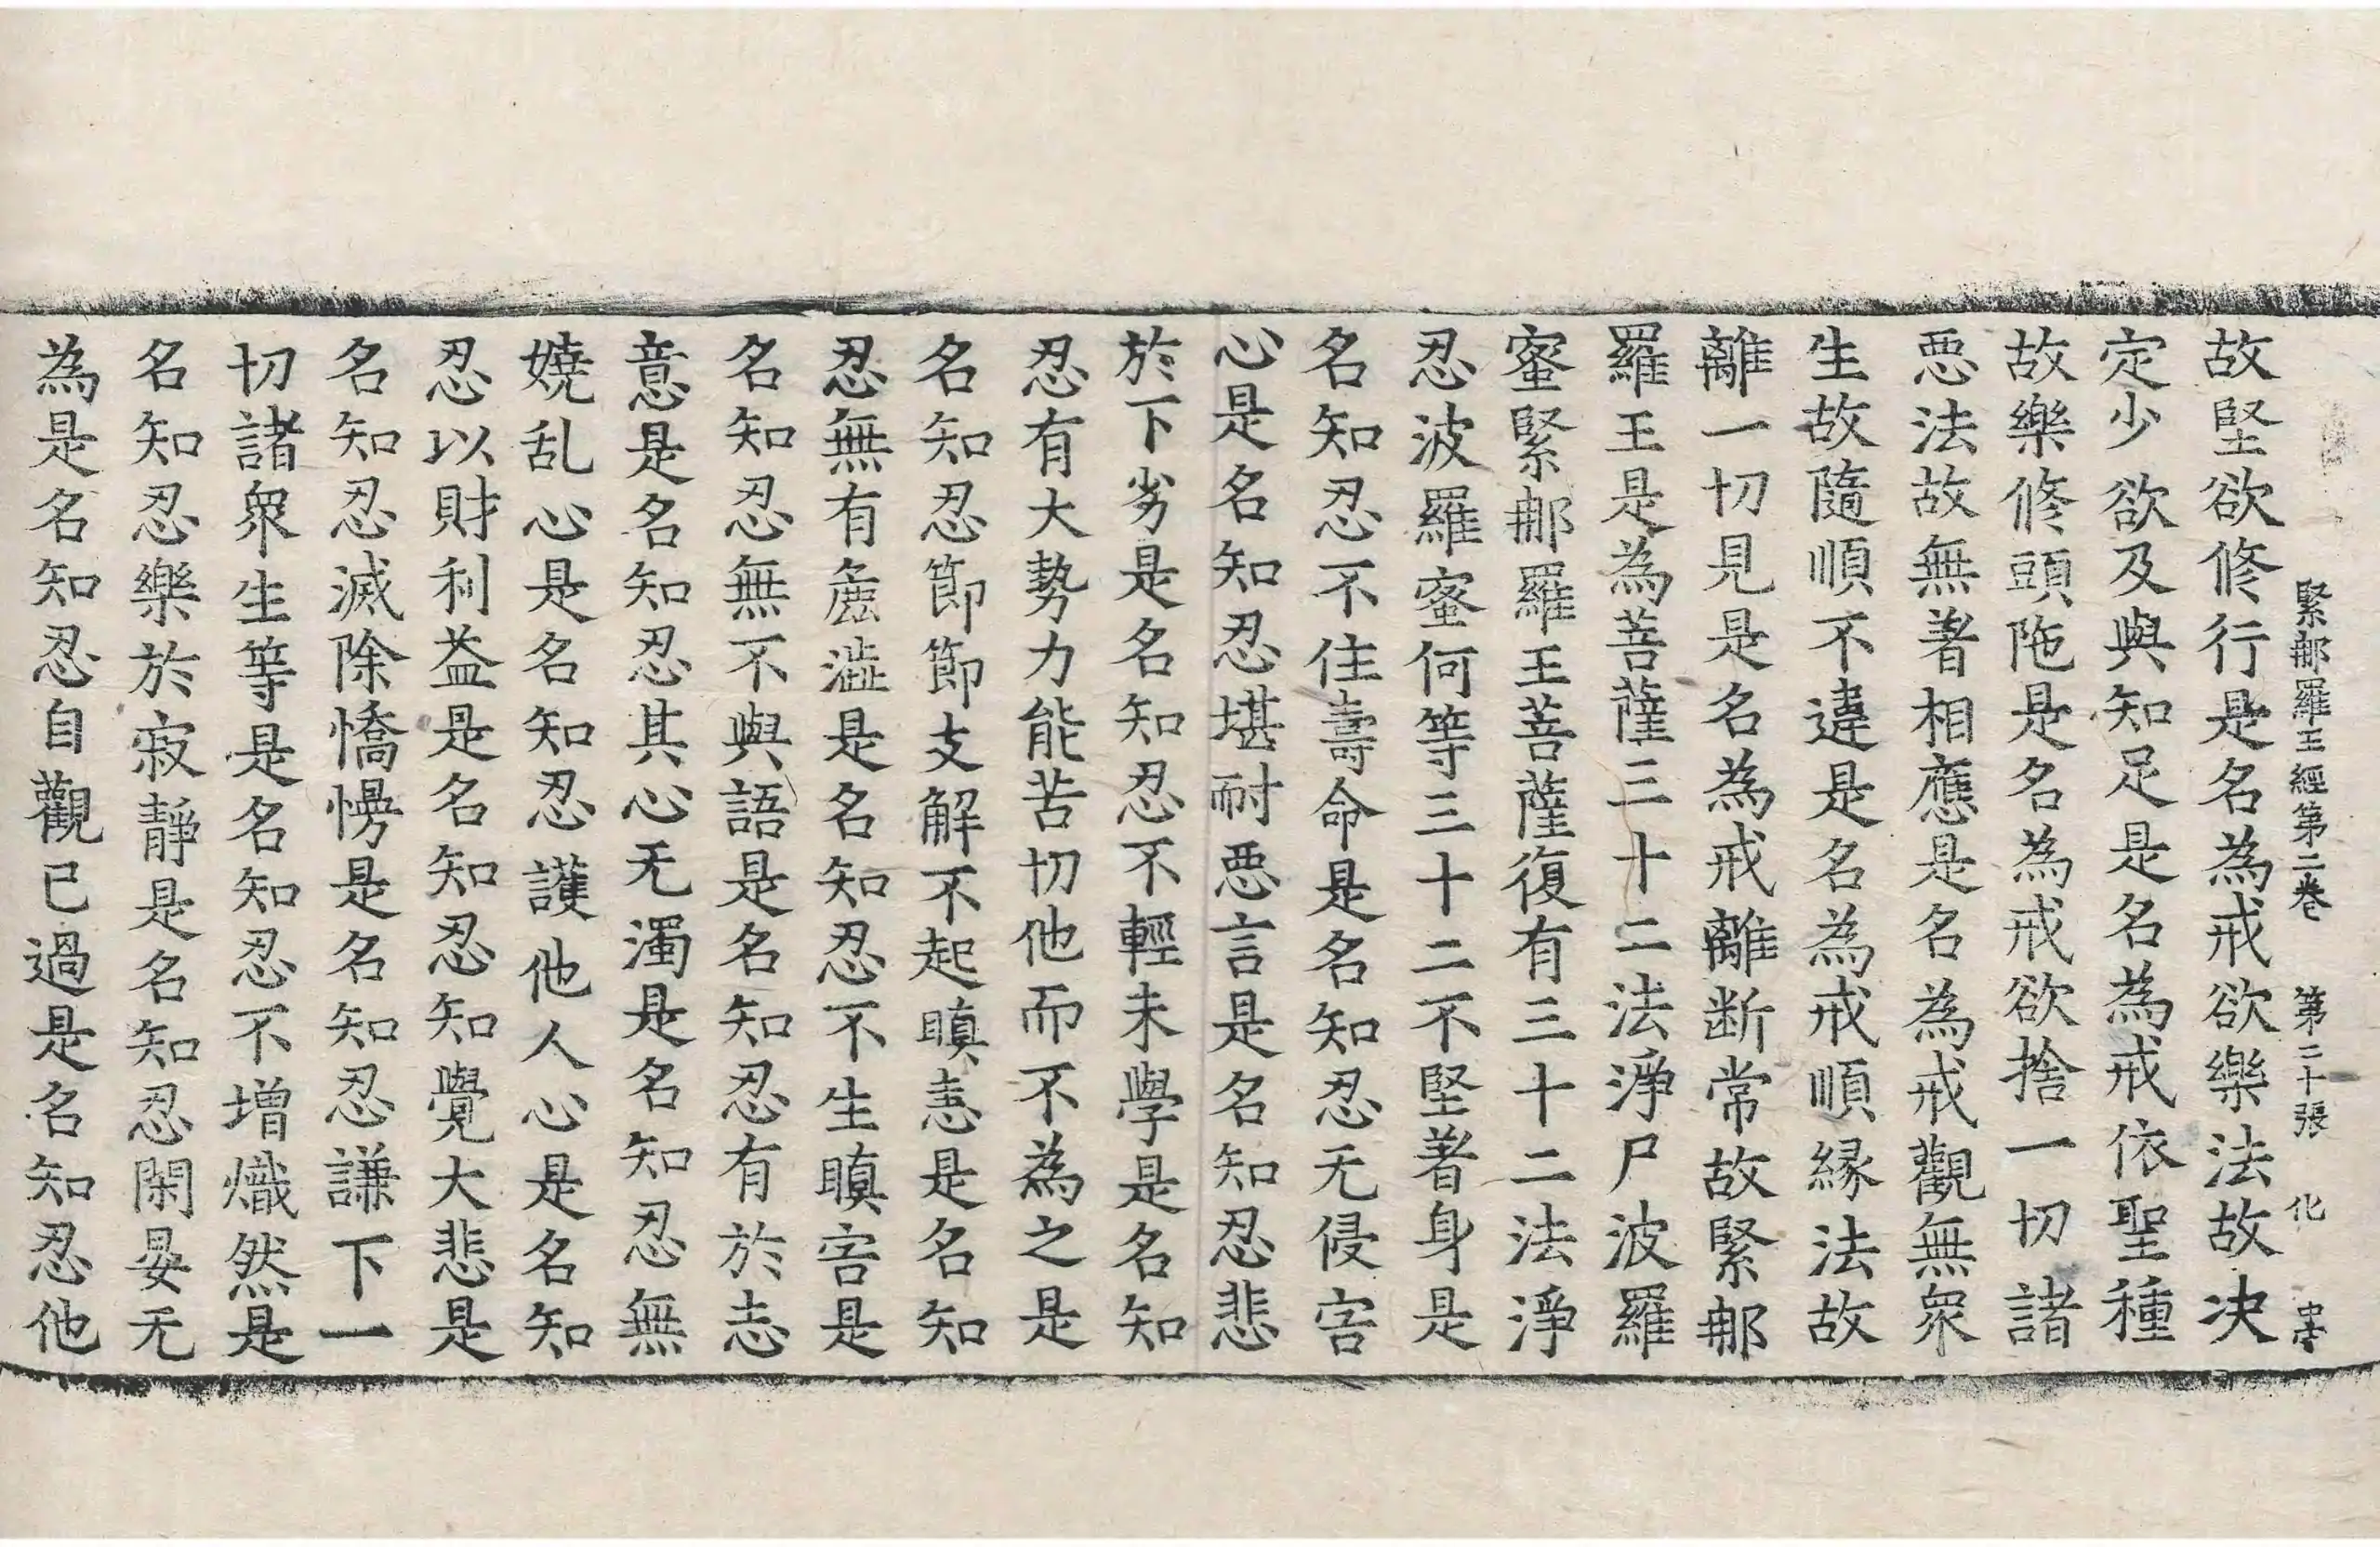 緊那羅王經第二卷 第二十張 化
故堅欲修行是名為戒欲樂法故决
定少欲及與知足是名為戒依聖種
故樂修頭陁是名為戒欲捨一切諸
惡法故無著相應是名為戒觀無衆
生故隨順不違是名為戒順縁法故
離一切見是名為戒離断常故緊那
羅王是為菩薩三十二法淨尸波羅
蜜緊那羅王菩薩復有三十二法淨
忍波羅蜜何等三十二不堅著身是
名知忍不住壽命是名知忍无侵害
心是名知忍堪耐惡言是名知忍悲
於下劣是名知忍不輕未學是名知
忍有大勢力能苦切他而不為之是
名知忍節節支解不起瞋恚是名知
忍無有麁澁是名知忍不生瞋害是
名知忍無不與語是名知忍有於志
意是名知忍其心无濁是名知忍無
嬈乱心是名知忍護他人心是名知
忍以財利益是名知忍知覺大悲是
名知忍滅除憍慢是名知忍謙下一
切諸衆生等是名知忍不增熾然是
名知忍樂於寂靜是名知忍閑晏无
為是名知忍自觀已過是名知忍他